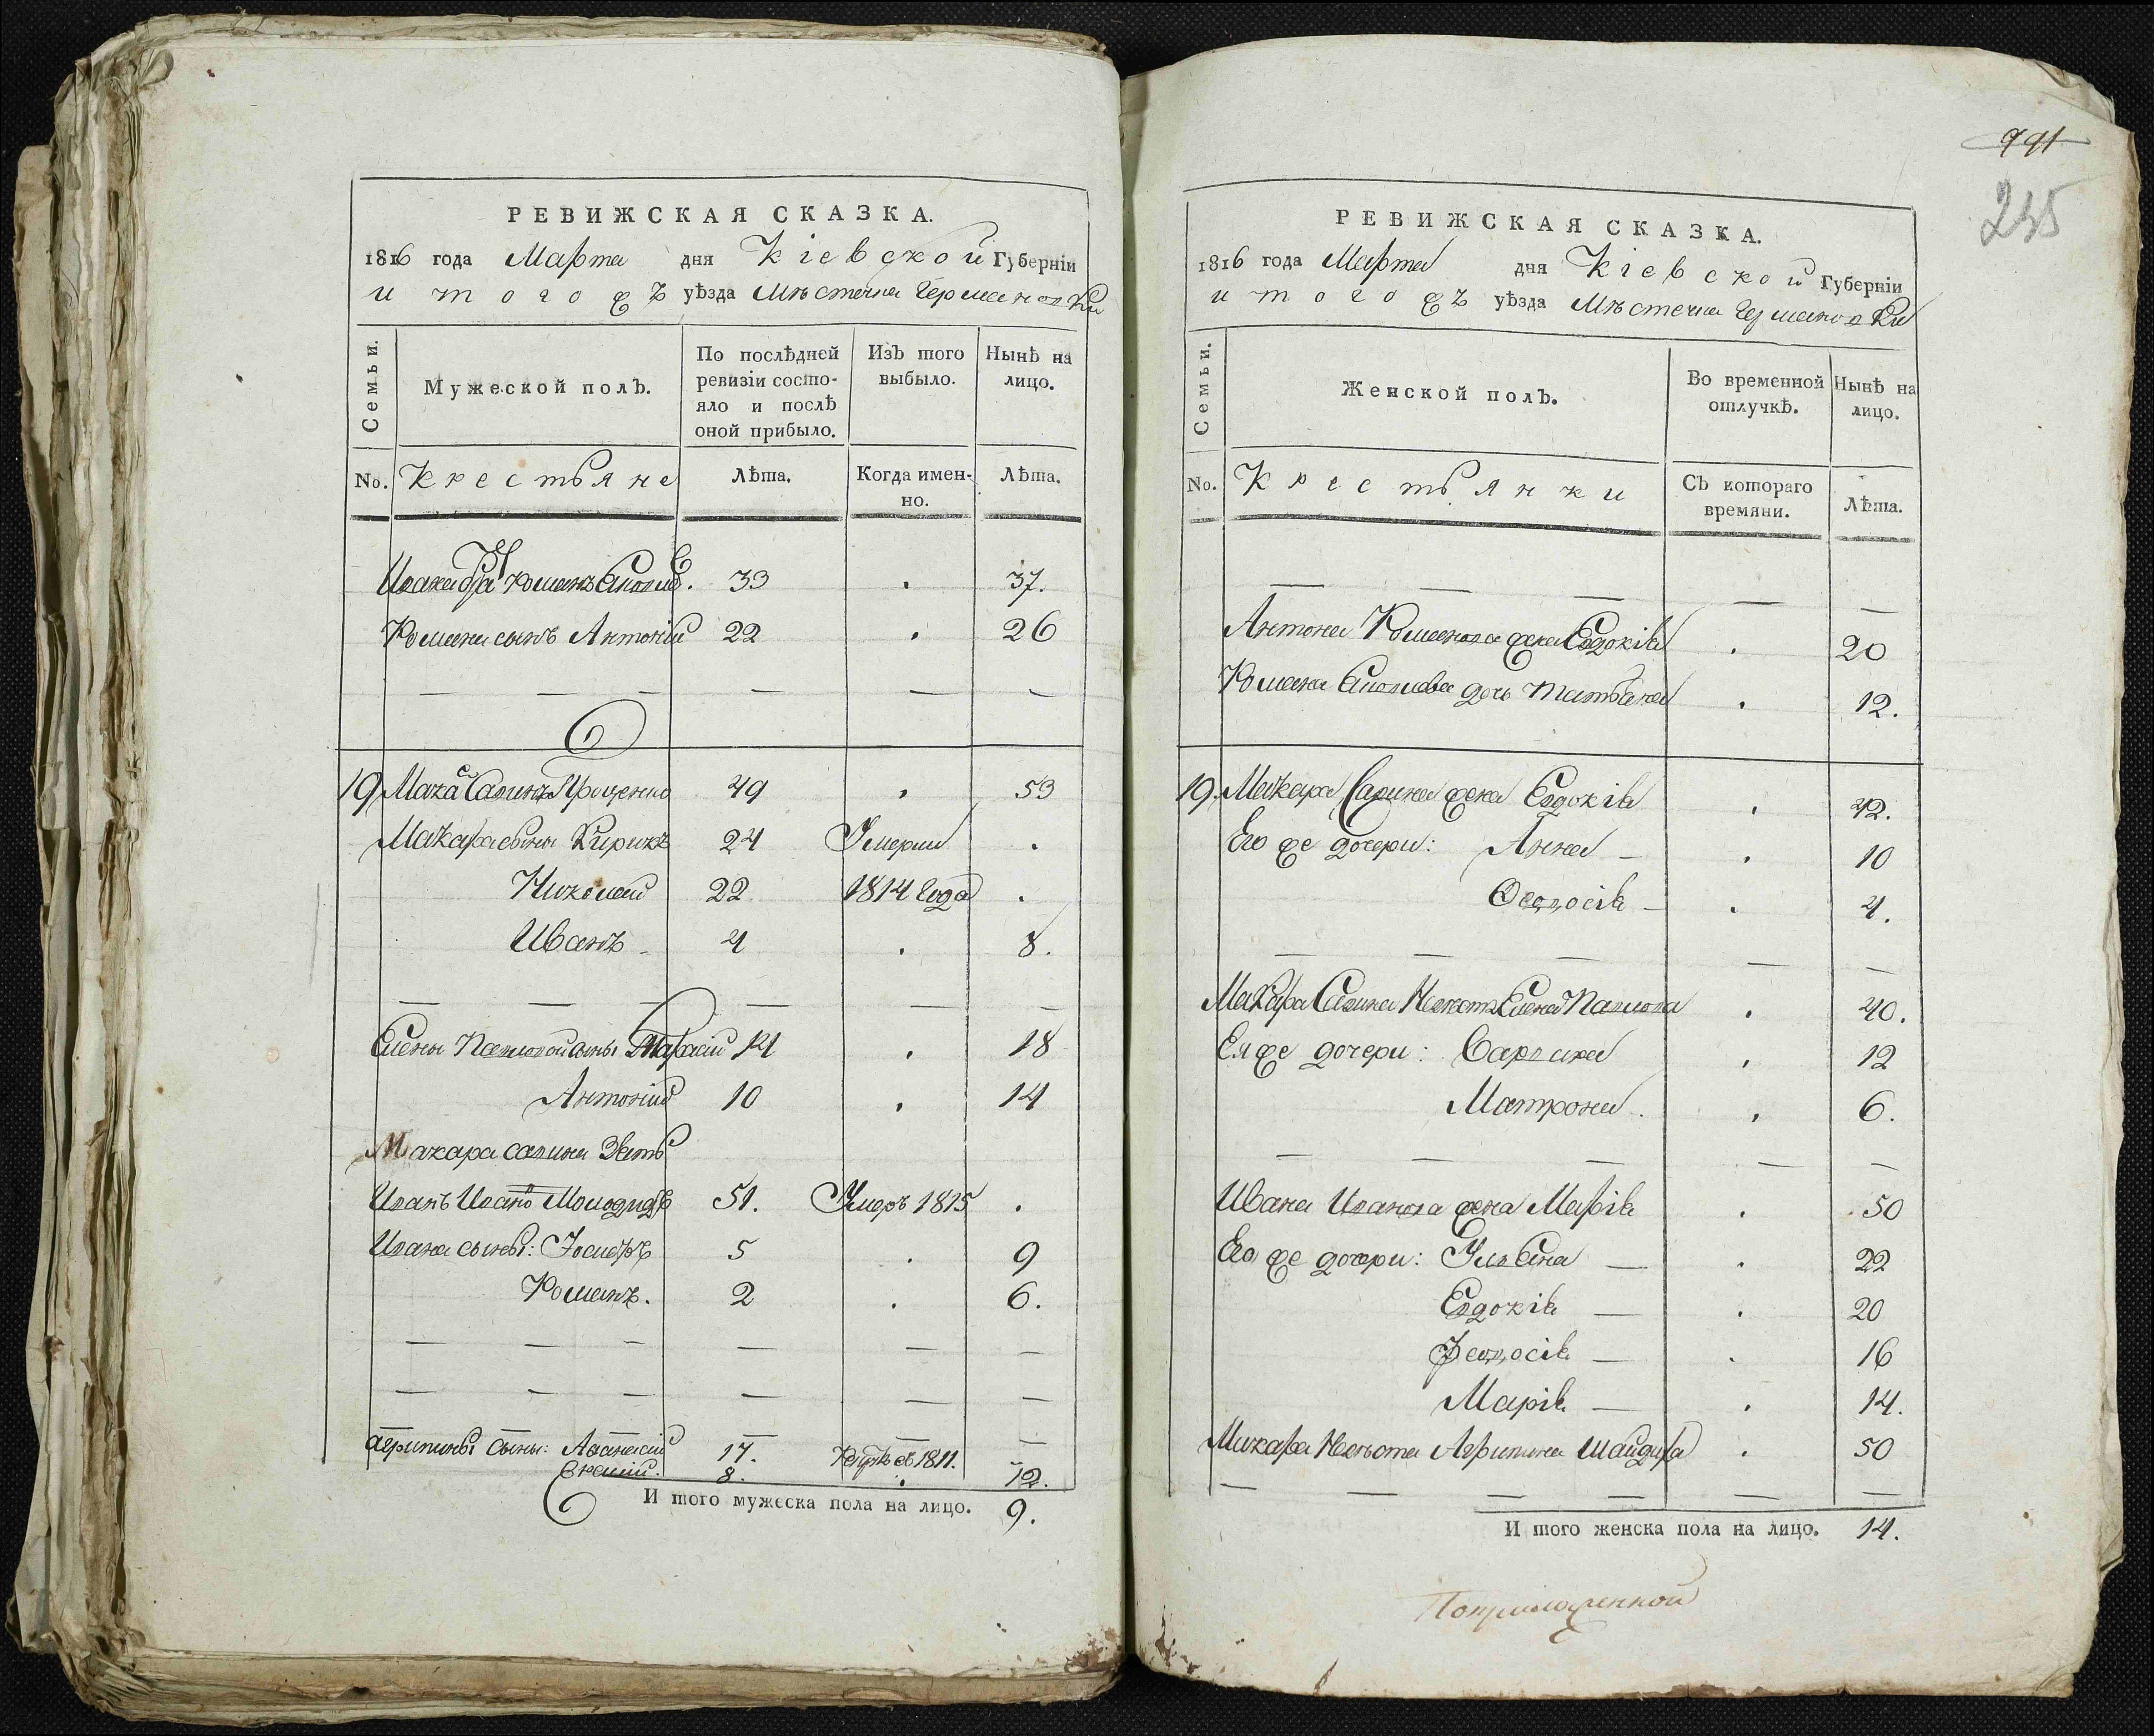 РЕВИЖСКАЯ СКАЗКА.
1816 года Марта дня Кіевской Губерніи
и того жъ уѣзда Мѣстечка Германовки
Семьи.
Мужеской полЪ.
По послѣдней ревизіи состо-
яло и послѣ оной прибыло.
ИзЪ того выбыло.
Нынѣ на лицо.
No.
Крестьяне
Лѣта.
Когда имен-
но.
Лѣта.
Ивана братъ Романъ 33 . 37.
Романа сынъ Антоній 22 . 26
19 Савинъ Проценко 49 . 53
Макара сыны Кирикъ 24 Умерли .
Николай 22 1814 года .
Иванъ 4 . 8.
Елены Павловой сыны 14 . 18
Антоній 10 . 14
Макара Савина Зять
Иванъ Ивано 51. Умеръ 1815 .
Ивана сыны: Іосифъ 5 . 9
Романъ. 2 . 6.
Агрипины сыны: Аѳанасій 17. 1811.
8. . 12.
И того мужеска пола на лицо. 9.
791
235
РЕВИЖСКАЯ СКАЗКА.
1816 года Марта дня Кіевской Губерніи
и того жъ уѣзда Мѣстечка Германовки
Семьи.
Женской полЪ.
Во временной отлучкѣ.
Нынѣ на лицо.
No.
Крестьянки
СЪ котораго времяни.
Лѣта.
Антона Романова жена Евдокія . 20
Романа дочь Татьяна . 12.
19. Макара Савина жена Евдокія . 42.
Его же дочери: Анна . 10
Ѳеодосія . 4.
Макара Савина Невѣстка Елена Павлова . 40.
Ея же дочери: Варвара . 12
Матрона . 6.
Ивана Иванова жена Марія . 50
Его же дочери: Ульяна . 22
Евдокія . 20
Феодосія . 16
Марія . 14.
Макара Агрипина . 50
И того женска пола на лицо. 14.